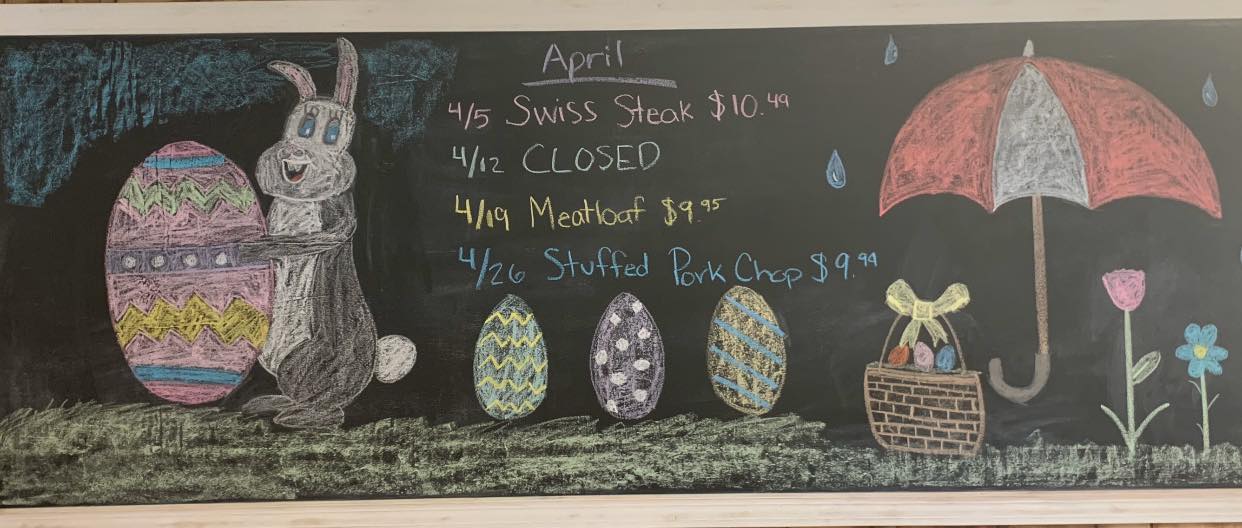 April
4/5 Swiss Steak $10.49
4/12 CLOSED
4/19 Meatloaf $9.95
4/26 Stuffed Pork Chop $9.99